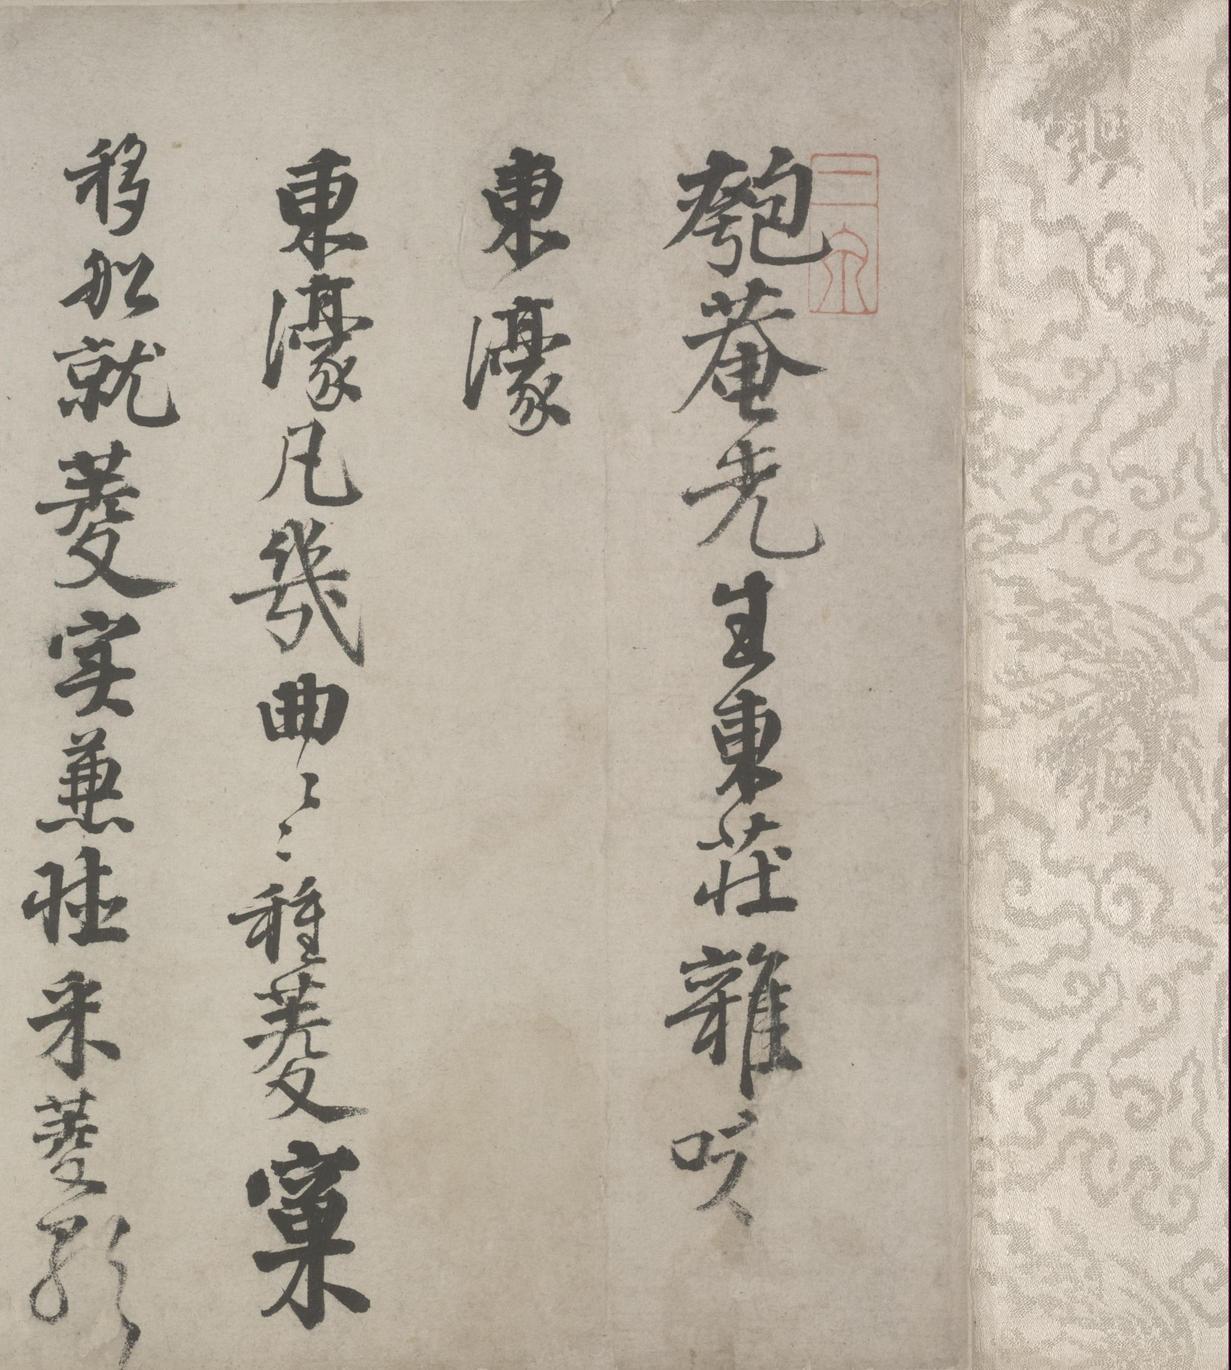 二泉
匏菴先生東莊雜咏
東濠
東濠凡幾曲〻〻種菱窠
移船就菱实兼聴采菱歌